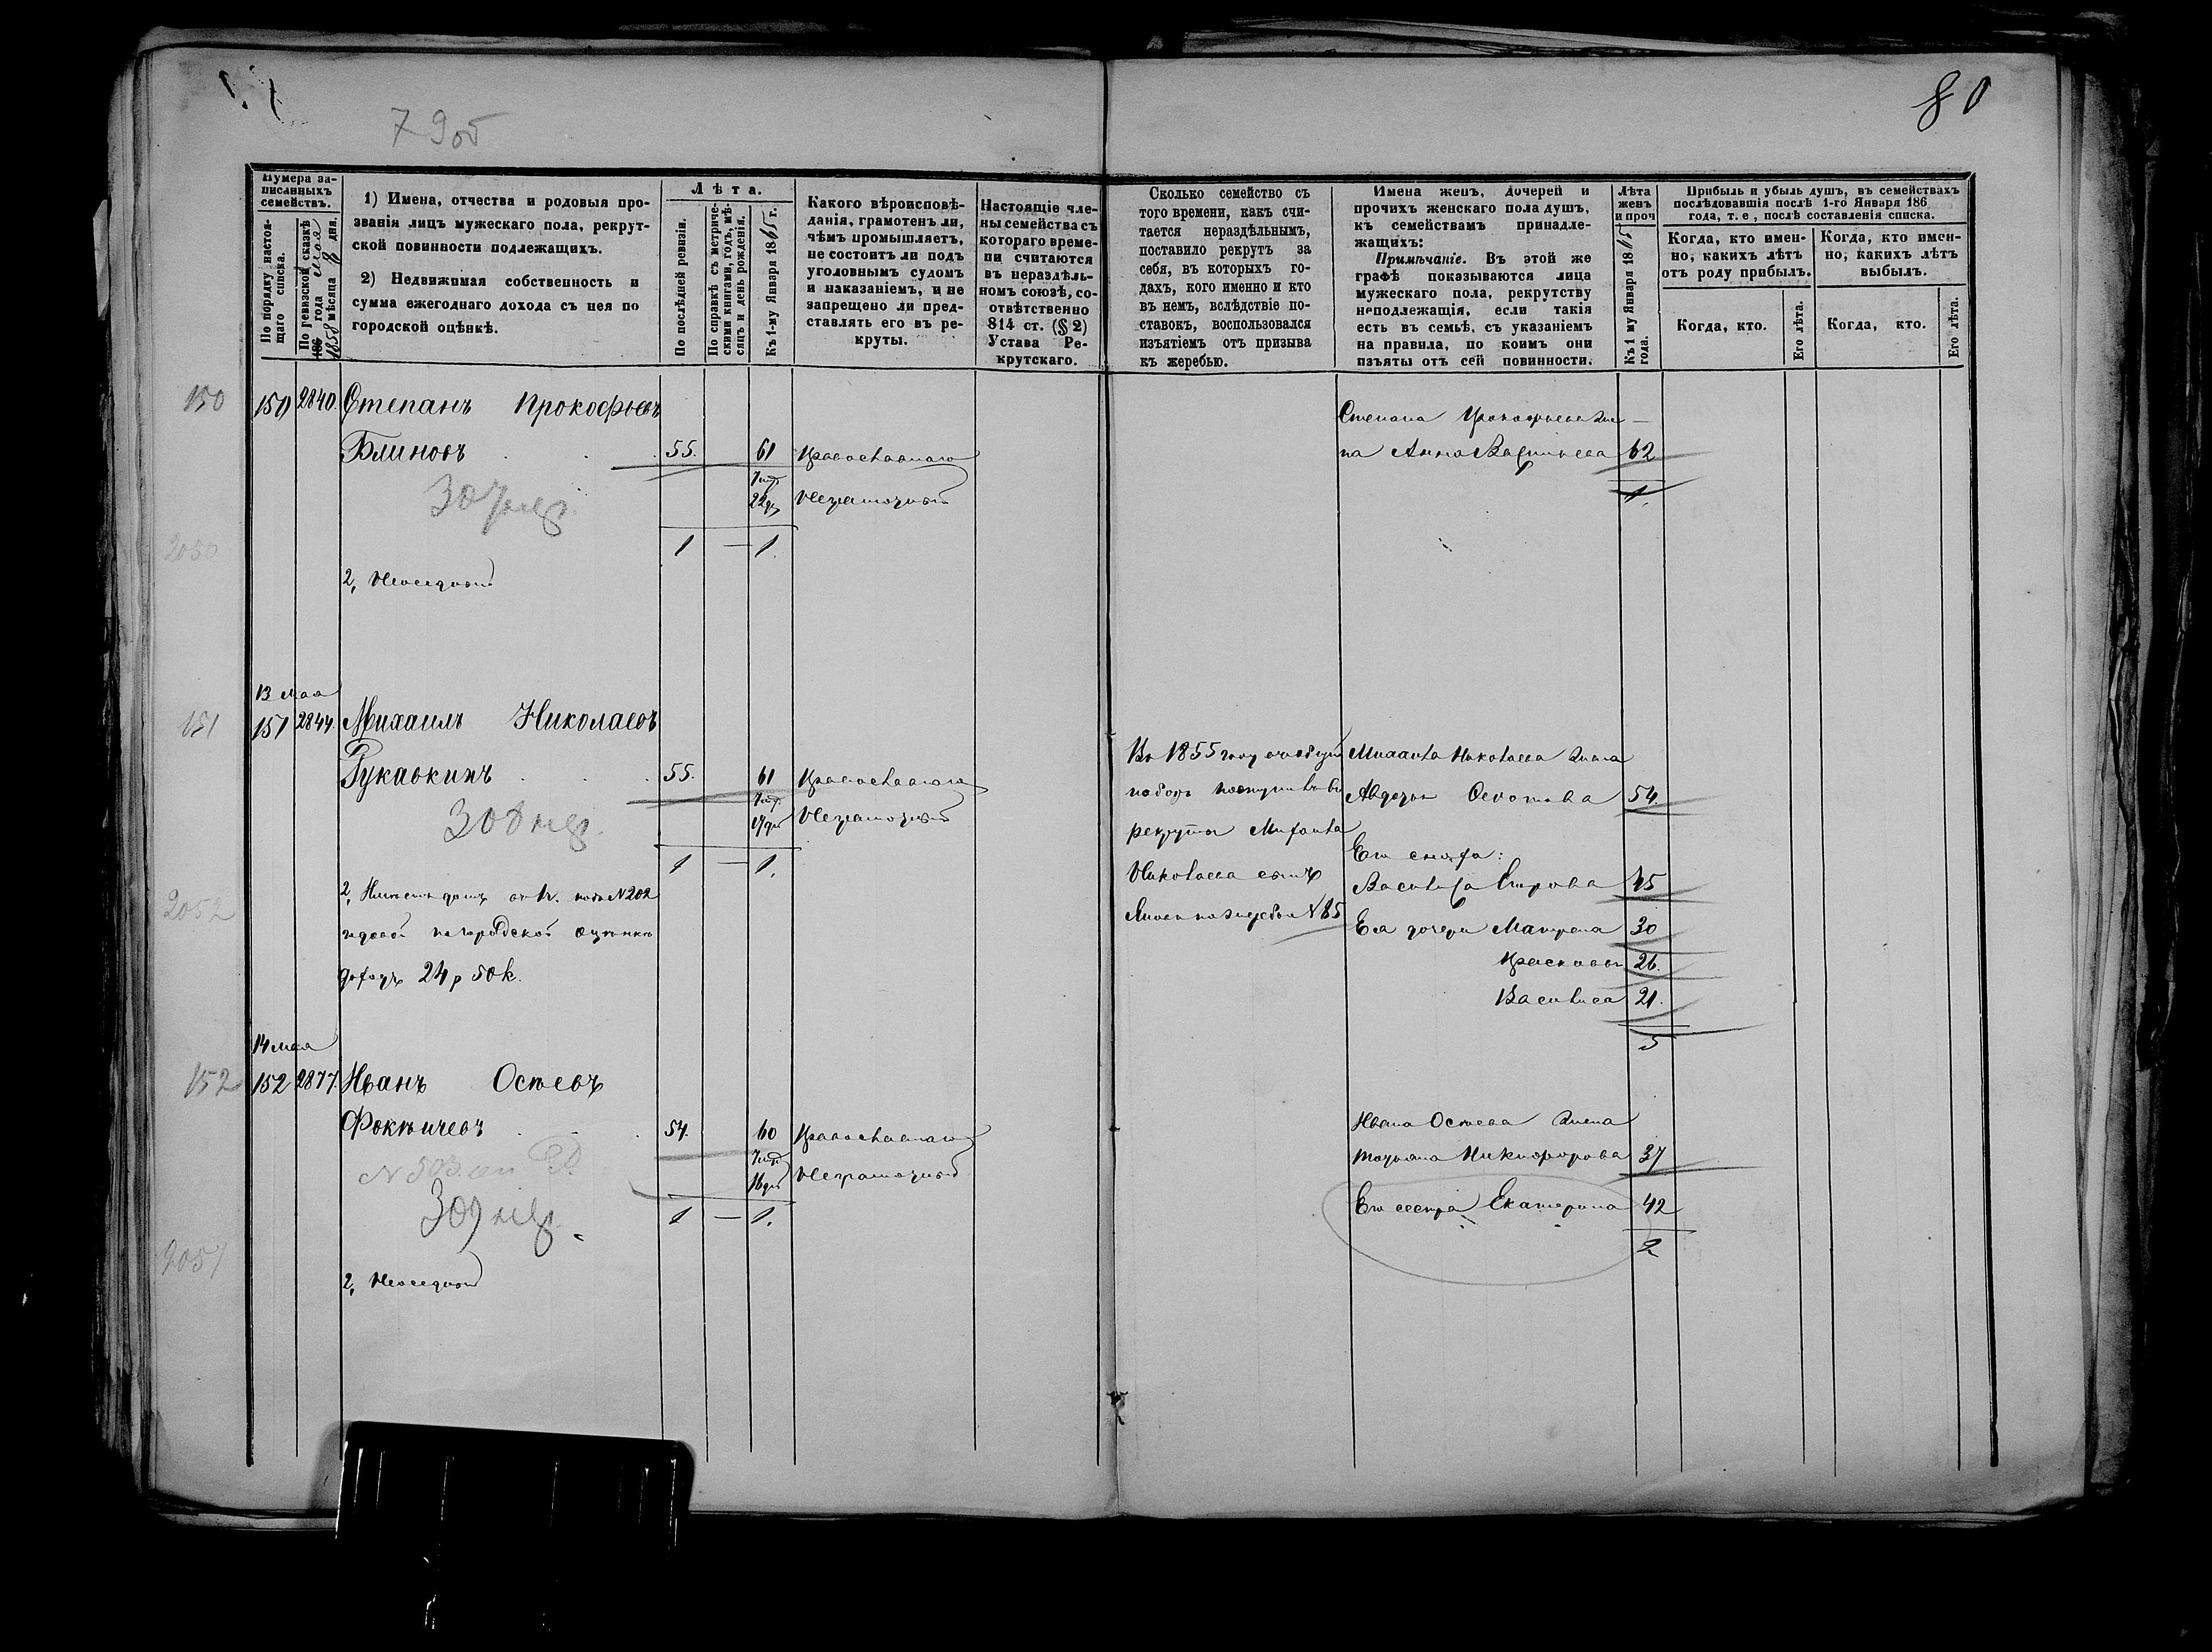 79об
80
Нумера за-
писанныхъ
семействъ.
По порядку настоя-
щаго списка.
По ревизской сказкѣ
186 года мая
1858 мѣсяца 8 дня.
1) Имена, отчества и родовыя про-
званія лицъ мужескаго пола, рекрут-
ской повинности подлежащихъ.
2) Недвижимая собственность и
сумма ежегоднаго дохода съ нея по
городской оцѣнкѣ.
Лѣта.
По послѣдней ревизіи.
По справкѣ съ метриче-
скими книгами, годъ, мѣ-
сяцъ и день рожденія.
Къ 1-му Января 1865 г.
Какого вѣроисповѣ-
данія, грамотенъ ли,
чѣмъ промышляетъ,
не состоитъ ли подъ
уголовнымъ судомъ
и наказаніемъ, и не
запрещено ли пред-
ставлять его въ ре-
круты.
Настоящіе чле-
ны семейства съ
котораго време-
ни считаются
въ нераздѣль-
номъ союзѣ, со-
отвѣтственно
814 ст. (§ 2)
Устава Ре-
крутскаго.
Сколько семейство съ
того времени, какъ счи-
тается нераздѣльнымъ,
поставило рекрутъ за
себя, въ которыхъ го-
дахъ, кого именно и кто
въ немъ, вслѣдствіе по-
ставокъ, воспользовался
изъятіемъ отъ призыва
къ жеребью.
Имена женъ, дочерей и
прочихъ женскаго пола душъ,
къ семействамъ принадле-
жащихъ:
Примѣчаніе. Въ этой же
графѣ показываются лица
мужескаго пола, рекрутству
неподлежащія, если такія
есть въ семьѣ, съ указаніемъ
на правила, по коимъ они
изъяты отъ сей повинности.
Лѣта
женъ
и проч
Къ 1 му Января 1865
года.
Прибыль и убыль душъ, въ семействахъ
послѣдовавшія послѣ 1-го Января 186
года, т. е., послѣ составленія списка.
Когда, кто имен-
но, какихъ лѣтъ
отъ роду прибылъ.
Когда, кто имен-
но, какихъ лѣтъ
выбылъ.
Когда, кто.
Его лѣта.
Когда, кто.
Его лѣта.
150 150 2840. Степанъ Прокофьевъ
Блиновъ 55. 61 Православнаго
22 Неграмотный
307
2050
1 — 1.
2, Неоседлый
Степана Прокофьева же-
на Анна Васильева 62
1.
13 мая
151 151 2844. Михаилъ Николаевъ
Рукавкинъ 55. 61 Православнаго
Неграмотный
308
1 — 1.
2052
2, Имѣетъ домъ № 202
по городской оцѣнкѣ
доходъ 24 р 50 к.
Въ 1855 году
наборъ поступилъ въ
рекруты Михаила
Николаева сынъ
№ 85
Михаила Николаева жена
Авдотья 54.
Его сноха:
Василиса 45
Ея дочери Матрена 30
Прасковья 26.
Василиса 21.
5
14 мая
152 152 2877. Иванъ Осѣевъ
Фокѣичевъ 54. 60 Православнаго
16 Неграмотный
№ 503
309
1 — 1.
2051
2, Неоседлый
Ивана Осѣева жена
Татьяна Никифорова 37
Его сестра Екатерина 42
2